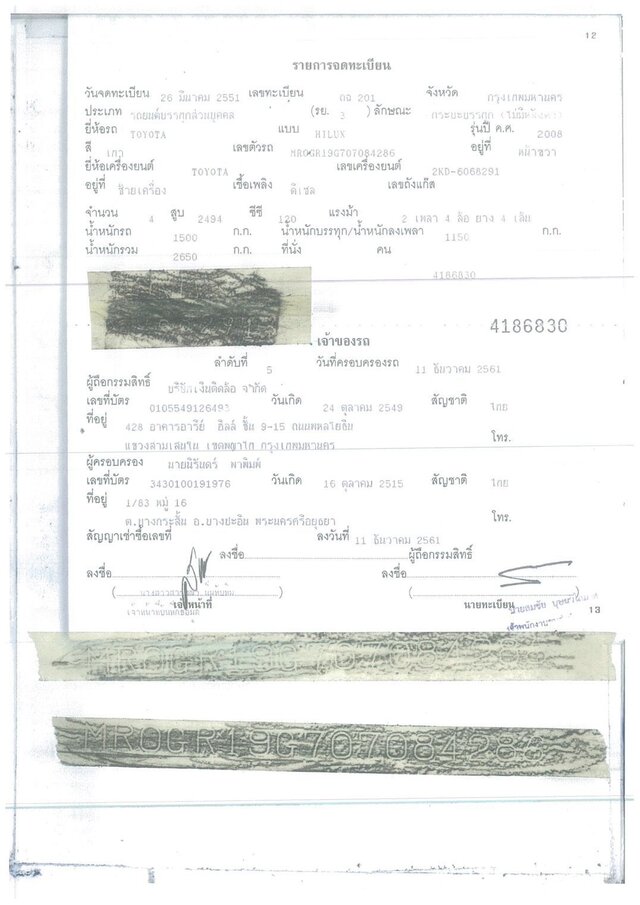 12
รายการจดทะเบียน
วันจดทะเบียน 26 มีนาคม 2551 เลขทะเบียน กฉ 201 จังหวัด กรุงเทพมหานคร
ประเภท รถยนต์บรรทุกส่วนบุคคล (รย. 3 ) ลักษณะ กระบะบรรทุก (ไม่มีหลังคา)
ยี่ห้อรถ TOYOTA แบบ HILUX รุ่นปี ค.ศ. 2008
สี เทา เลขตัวรถ MROGR19G707084286 อยู่ที่ หน้าขวา
ยี่ห้อเครื่องยนต์ TOYOTA เลขเครื่องยนต์ 2KD-6068291
อยู่ที่ ซ้ายเครื่อง เชื้อเพลิง ดีเซล เลขถังแก๊ส
จำนวน 4 สูบ 2494 ซีซี 120 แรงม้า 2 เพลา 4 ล้อ ยาง 4 เส้น
น้ำหนักรถ 1500 ก.ก. น้ำหนักบรรทุก/น้ำหนักลงเพลา 1150 ก.ก.
น้ำหนักรวม 2650 ก.ก. ที่นั่ง คน
4186830
4186830
เจ้าของรถ
ลำดับที่ 5 วันที่ครอบครองรถ 11 ธันวาคม 2561
ผู้ถือกรรมสิทธิ์ บริษัทเงินติดล้อ จำกัด
เลขที่บัตร 0105549126493 วันเกิด 24 ตุลาคม 2549 สัญชาติ ไทย
ที่อยู่ 428 อาคารอารีย์ ฮิลล์ ชั้น 9-15 ถนนพหลโยธิน
แขวงสามเสนใน เขตพญาไท กรุงเทพมหานคร โทร.
ผู้ครอบครอง นายนิรันดร์ พาพิมพ์
เลขที่บัตร 3430100191976 วันเกิด 16 ตุลาคม 2515 สัญชาติ ไทย
ที่อยู่ 1/83 หมู่ 16
ต.บางกระสั้น อ.บางปะอิน พระนครศรีอยุธยา โทร.
สัญญาเช่าซื้อเลขที่ ลงวันที่ 11 ธันวาคม 2561
ลงชื่อ ผู้ถือกรรมสิทธิ์
ลงชื่อ ลงชื่อ
เจ้าหน้าที่ นายทะเบียน 13
MROGR19G707084286
MROGR19G707084286